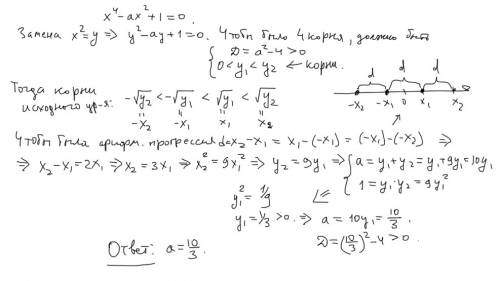 x⁴-ax²+1=0.
Замена x²=y ⇒ y²-ay+1=0. Чтобы было 4 корня, должно быть
{ D=a²-4>0
0<y₁<y₂ ← корни.
Тогда корни исходного ур-я: -√y₂ < -√y₁ < √y₁ < √y₂
-x₂ -x₁ x₁ x₂
d d d
-x₂ -x₁ 0 x₁ x₂
Чтобы была арифм. прогрессия d=x₂-x₁ = x₁-(-x₁) = (-x₁)-(-x₂) ⇒
⇒ x₂-x₁=2x₁ ⇒ x₂=3x₁ ⇒ x₂²=9x₁² ⇒ y₂=9y₁ ⇒ { a=y₁+y₂=y₁+9y₁=10y₁
1=y₁·y₂=9y₁²
y₁²=1/9
y₁=1/3>0. ⇒ a=10y₁=10/3.
D=(10/3)²-4>0.
Ответ: a=10/3.